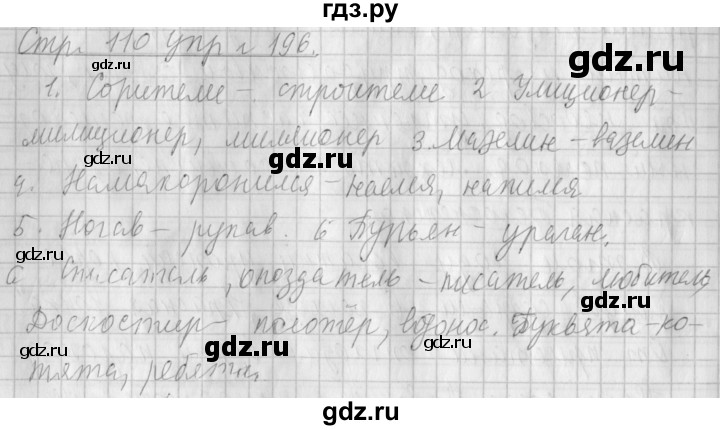 гдз.ру
Стр. 110 упр. 196.
1. Сорители – строители 2 Улиционер –
милиционер, миллионер 3. Мазелин – вазелин
4. Намакоронился – наелся, напился
5. Ногав – рукав. 6 Бурьян – ураган.
Списатель, опоздатель – писатель, любитель,
Доскостир – полотёр, водонос. Буквята – ко-
тята, ребята.
gdz.ru
gdz.ru
gdz.ru
gdz.ru
gdz.ru
gdz.ru
gdz.ru
gdz.ru
gdz.ru
gdz.ru
gdz.ru
gdz.ru